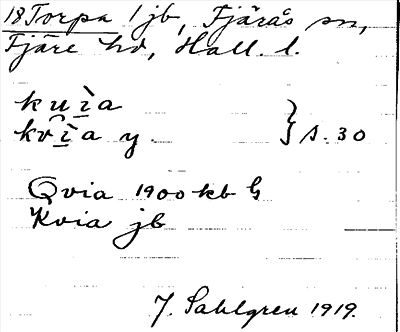 18 Torpa 1 jb, Fjärås sn,
Fjäre hd, Hall. l.
kuì̱a
kvì̱a y. } s. 30
Qvia 1900 kb G
Kvia jb
J. Sahlgren 1919.